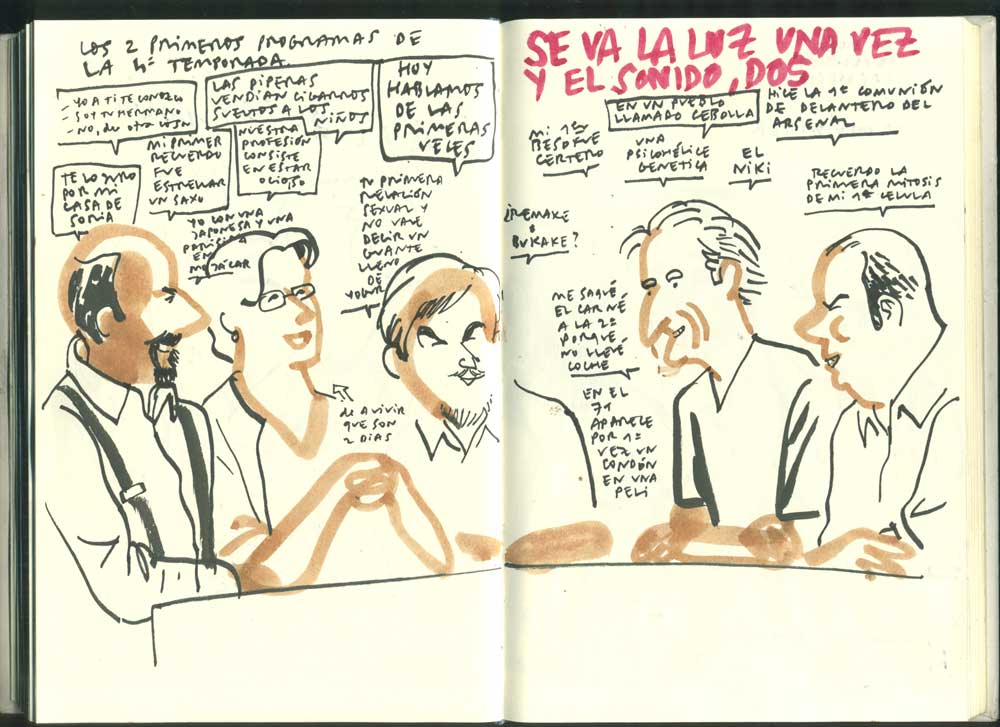 LOS 2 PRIMEROS PROGRAMAS DE
LA 4ª TEMPORADA
- YO A TI TE CONOZCO
- SOY TU HERMANO
- NO, de otra cosa
LAS PIPERAS
VENDÍAN CIGARROS
SUELTOS A LOS
NIÑOS
HOY
HABLAMOS
DE LAS
PRIMERAS
VECES
TE LO JURO
POR MI
CASA DE
SORIA
MI PRIMER
RECUERDO
FUE
ESTRELLAR
UN SAXO
NUESTRA
PROFESIÓN
CONSISTE
EN ESTAR
OCIOSO
YO CON UNA
JAPONESA Y UNA
PARISINA
EN
MOJÁCAR
TU PRIMERA
RELACIÓN
SEXUAL Y
NO VALE
DECIR UN
GUANTE
LLENO
DE
YOGUR
de A VIVIR
QUE SON
2 DÍAS
SE VA LA LUZ UNA VEZ
Y EL SONIDO, DOS
EN UN PUEBLO
LLAMADO CEBOLLA
HICE LA 1ª COMUNIÓN
DE DELANTERO DEL
ARSENAL
MI 1er
BESO FUE
CERTERO
UNA
PSICOHÉLICE
GENÉTICA
EL
NIKI
RECUERDO LA
PRIMERA MITOSIS
DE MI 1ª CÉLULA
¿REMAKE
O
BUKAKE?
ME SAQUÉ
EL CARNÉ
A LA 2ª
PORQUE
NO LLEVÉ
COCHE
EN EL
71
APARECE
POR 1ª
VEZ UN
CONDÓN
EN UNA
PELI